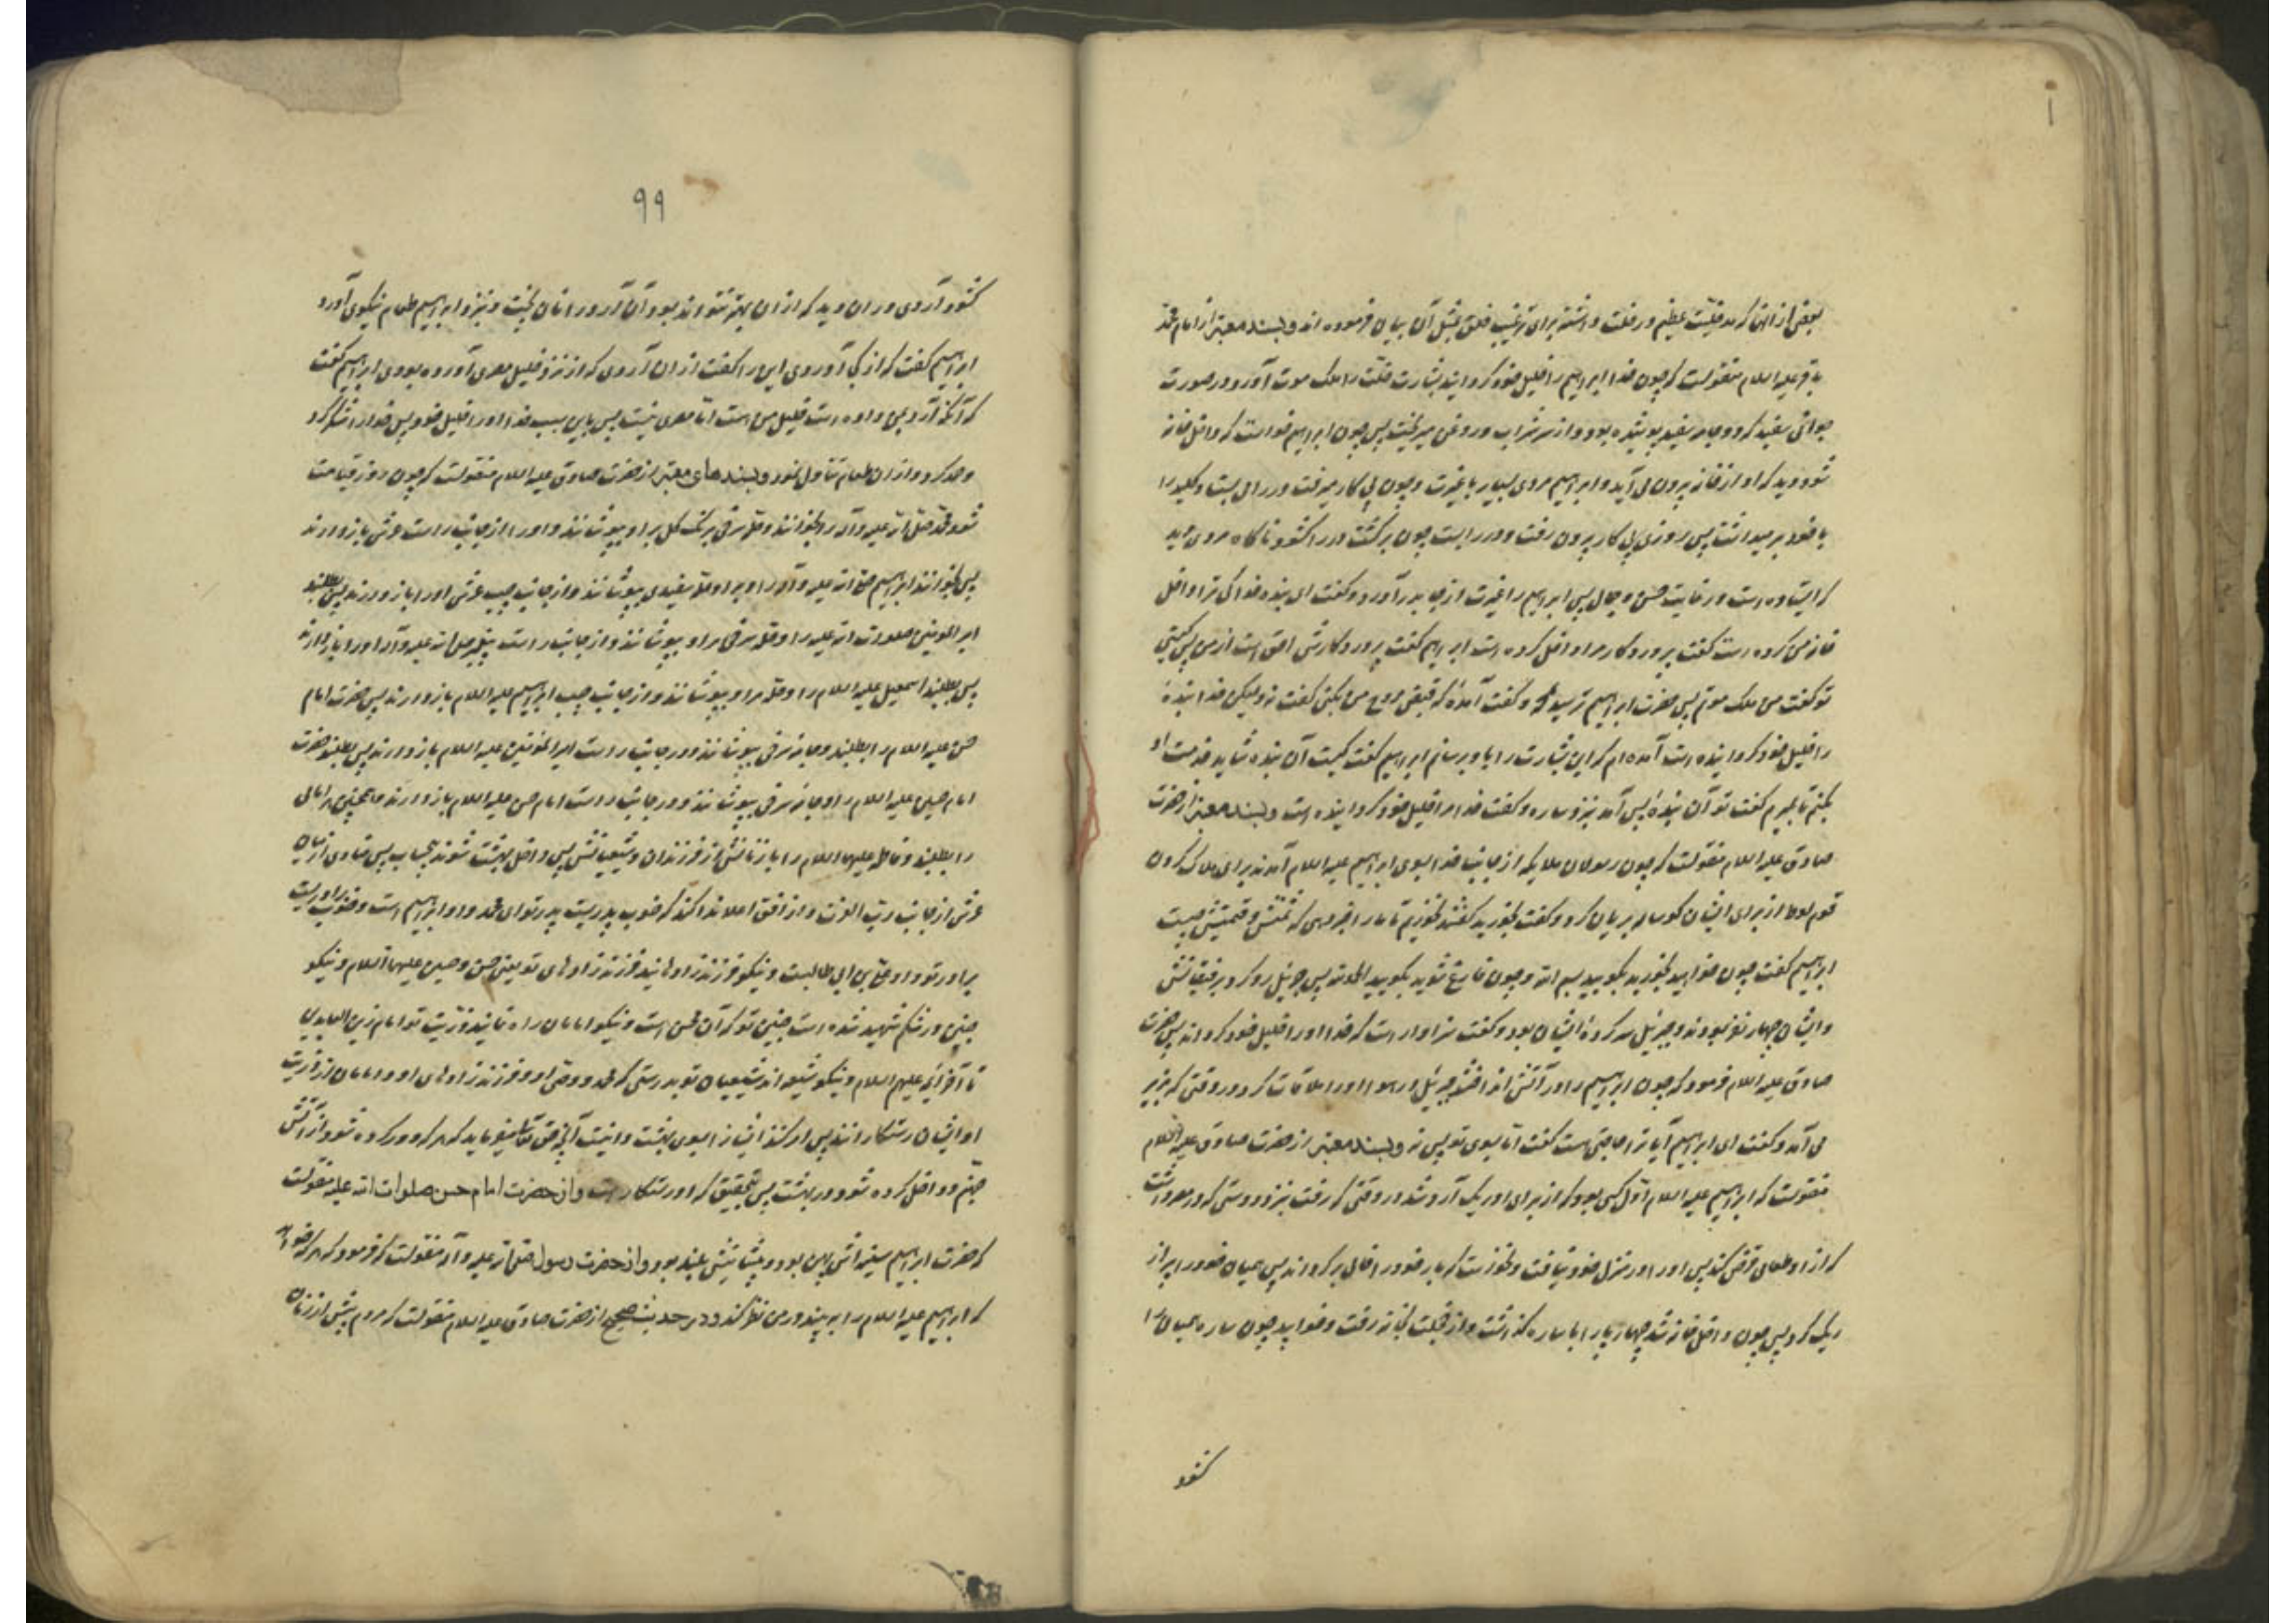 بعضی از انها که مدخلیت عظیم در خلت داشته برای ترغیب خلق بمثل آن بیان فرموده اند و بسند معتبر از امام محمد
باقر علیه السلام منقولست که چون خدا ابراهیم را خلیل خود گردانید بشارت خلّت را ملک موت آورد در صورت
جوانی سفید که دو جامه سفید پوشیده بود و از سرش آب و روغن میریخت پس چون ابراهیم خواست که داخل خانه
شود دید که او از خانه بیرون می آید و ابراهیم مردی بسیار با غیرت و چون پی کار میرفت در را می بست و کلید را
با خود برمیداشت پس روزی پی کار بیرون رفت و در را بست چون برگشت در را گشود ناگاه مردی دید
که ایستاده است در غایت حسن و جمال پس ابراهیم را غیرت از جا بدر آورد و گفت ای بنده خدا کی ترا داخل
خانه من کرده است گفت پروردگار مرا داخل کرده است ابراهیم گفت پروردگارش احق است از من پس کیستی
تو گفت من ملک موتم پس حضرت ابراهیم ترسید و گفت آمدهٔ که قبض روح من بکنی گفت نه ولیکن خدا بندهٔ
را خلیل خود گردانیده است آمده ام که این بشارت را باو برسانم ابراهیم گفت کیست آن بنده شاید خدمت او
بکنم تا بمیرم گفت تو آن بندهٔ پس آمد بنزد ساره و گفت خدا مرا خلیل خود گردانیده است و بسند معتبر از حضرت
صادق علیه السلام منقولست که چون رسولان ملایکه از جانب خدا بسوی ابراهیم علیه السلام آمدند برای هلاک کردن
قوم لوط از برای ایشان گوساله بریان کرد و گفت بخورید گفتند نخوریم تا ما را خبر دهی که ثمنش و قیمتش چیست
ابراهیم گفت چون خواهید بخورید بگویید بسم الله و چون فارغ شوید بگویید الحمد لله پس جبرئیل رو کرد برفیقانش
و ایشان چهار نفر بودند و جبرئیل سرکردهٔ ایشان بود و گفت سزاوار است که خدا او را خلیل خود گرداند پس حضرت
صادق علیه السلام فرمود که چون ابراهیم را در آتش انداختند جبرئیل در هوا او را ملاقات کرد در وقتی که بزیر
می آمد و گفت ای ابراهیم آیا ترا حاجتی هست گفت اما بسوی تو پس نه و بسند معتبر از حضرت صادق علیه السلام
منقولست که ابراهیم علیه السلام اوّل کسی بود که از برای او ریگ آرد شد در وقتی که رفت بنزد دوستی که در مصر داشت
که از او طعامی قرض کند پس او را در منزل خود نیافت و نخواست که بار خود را خالی برگرداند پس همیان خود را پر از
ریگ کرد پس چون داخل خانه شد چهارپا را با ساره گذاشت و از خجلت بخانه رفت و خوابید چون ساره همیان را
گشود
۹۹
گشود آردی در ان دید که از ان بهتر نتواند بود و آن آرد را نان پخت و بنزد ابراهیم طعام نیکوی آورد
ابراهیم گفت که از کجا آوردی این را گفت از ان آردی که از نزد خلیل مصری آورده بودی ابراهیم گفت
که آنکه آرد بمن داده است خلیل من است امّا مصری نیست پس باین سبب خدا او را خلیل خود پس خدا را شکر کرد
و حمد کرد و از ان طعام تناول نمود و بسندهای معتبر از حضرت صادق علیه السلام منقولست که چون روز قیامت
شود محمّد صلّی الله علیه و آله را بخوانند و حلّه سرخی برنگ گل بر او بپوشانند و او را از جانب راست عرش بازدارند
پس بخوانند ابراهیم صلی الله علیه و آله را و بر او حلّه سفیدی بپوشانند و از جانب چپ عرش او را بازدارند پس بطلبند
امیر المومنین صلوات الله علیه را و حلّه سرخی بر او بپوشانند و از جانب راست پیغمبر صلی الله علیه و آله او را بازدارند
پس بطلبند اسمعیل علیه السلام را و حلّه بر او بپوشانند و از جانب چپ ابراهیم علیه السلام بازدارند پس حضرت امام
حسن علیه السلام را بطلبند و جامه سرخی بپوشانند و در جانب راست امیر المؤمنین علیه السلام بازدارند پس بطلبند حضرت
امام حسین علیه السلام را و جامهٔ سرخی بپوشانند و در جانب راست امام حسن علیه السلام بازدارند و همچنین هر امامی
را بطلبند و فاطمه علیها السلام را با زنانش از فرزندان و شیعیانش پس داخل بهشت شوند بیحساب پس منادی از میان
عرش از جانب ربّ العزت و از افق اعلا ندا کند که خوب پدریست پدر تو ای محمد و او ابراهیم است و خوب برادریست
برادر تو و او علی بن ابی طالبست و نیکو فرزندزاده هایند فرزندزاده های تو یعنی حسن و حسین علیهما السلام و نیکو
جنین در شکم شهید شده است جنین تو که آن محسن است و نیکو امامان راه نمایند ذرّیت تو امام زین العابدین
تا آخر ائمه علیهم السلام و نیکو شیعه اند شیعیان تو بدرستی که محمد و وصّی او و فرزندزاده های او و امامان از ذرّیت
او ایشان رستگارانند پس امر کنند ایشان را بسوی بهشت و اینست آنچه حق تعالی میفرماید که هر که دور کرده شود از آتش
جهنّم و داخل کرده شود در بهشت پس بتحقیق که او رستگار است و از حضرت امام حسن صلوات الله علیه منقولست
که حضرت ابراهیم سینه اش پهن بود و پیشانیش بلند بود و از حضرت رسول صلی الله علیه و آله منقولست که فرمود که هر که خواهد
که ابراهیم علیه السلام را ببیند در من نظر کند و در حدیث صحیح از حضرت صادق علیه السلام منقولست که مردم پیش از زمان